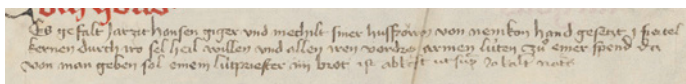 Es gefalt Jarzit hansen giger vnd mechilt siner husfrowen von nenikon hand gesetzt j fiertel
kernen durch iro sel heil willen vnd allen iren vordren armen lüten zü einer spend da
von man geben sol einem lütpriester im brot ist ablost ut sup